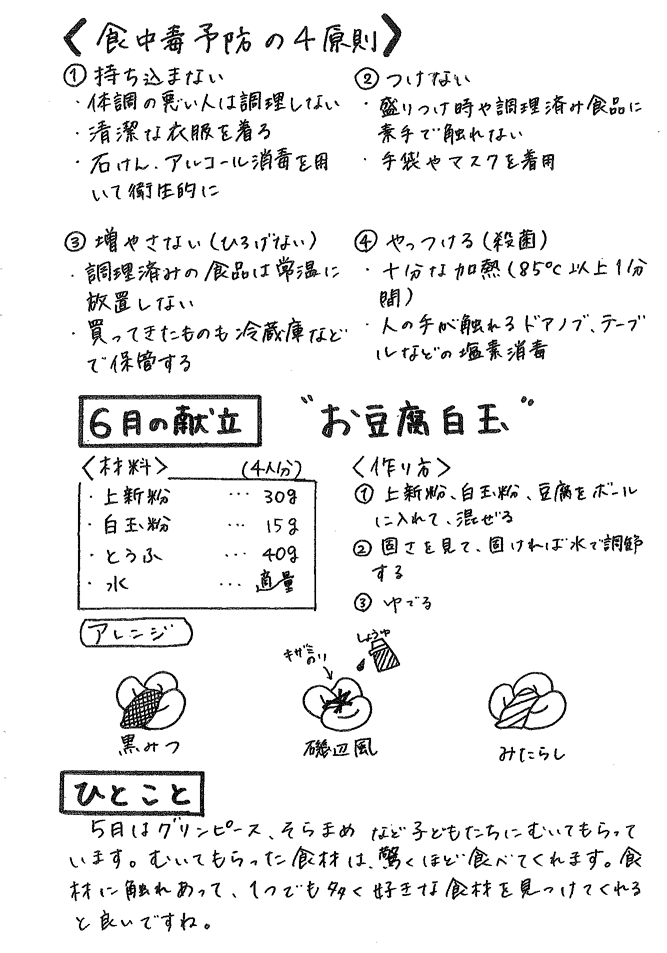 〈食中毒予防の4原則〉
① 持ち込まない
・体調の悪い人は調理しない
・清潔な衣服を着る
・石けん、アルコール消毒を用
いて衛生的に
② つけない
・盛りつけ時や調理済み食品に
素手で触れない
・手袋やマスクを着用
③ 増やさない(ひろげない)
・調理済みの食品は常温に
放置しない
・買ってきたものも冷蔵庫など
で保管する
④ やっつける(殺菌)
・十分な加熱(85℃以上1分
間)
・人の手が触れるドアノブ、テーブ
ルなどの塩素消毒
6月の献立 “お豆腐白玉”
〈材料〉 (4人分)
・上新粉 … 30g
・白玉粉 … 15g
・とうふ … 40g
・水 … 適量
〈作り方〉
① 上新粉、白玉粉、豆腐をボール
に入れて、混ぜる
② 固さを見て、固ければ水で調節
する
③ ゆでる
アレンジ
黒みつ
キザミ
のり
しょうゆ
磯辺風
みたらし
ひとこと
5月はグリンピース、そらまめなど子どもたちにむいてもらって
います。むいてもらった食材は、驚くほど食べてくれます。食
材に触れあって、1つでも多く好きな食材を見つけてくれる
と良いですね。